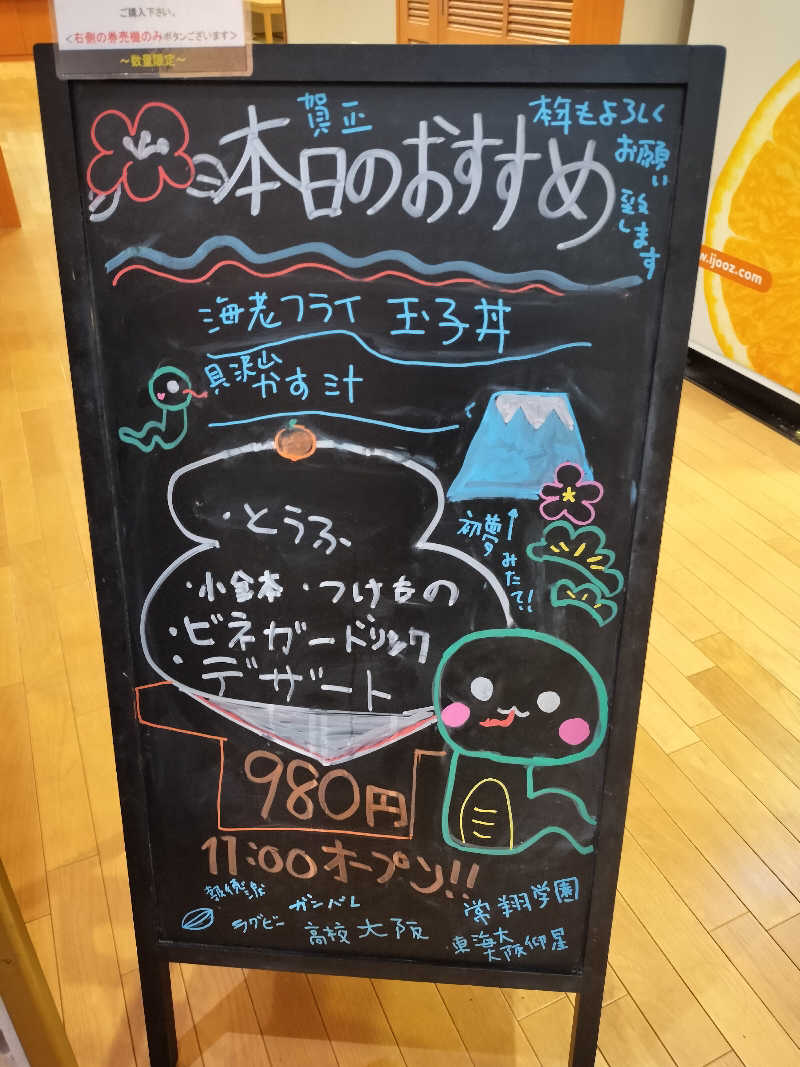 ご購入下さい。
<右側の券売機のみボタンございます>
～数量限定～
賀正
本日のおすすめ
本年もよろしく
お願い
致します
www.ijooz.com
海老フライ 玉子丼
具沢山
かす汁
・とうふ
・小鉢 ・つけもの
・ビネガードリンク
・デザート
初夢
みたて!!
980円
11:00オープン!!
ラグビー
ガンバレ
高校大阪
常翔学園
東海大
大阪仰星